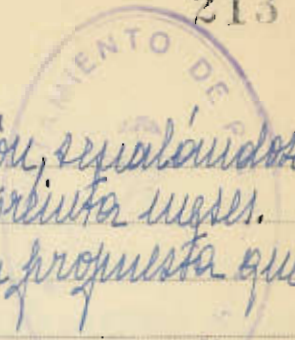 213
AMIENTO DE
ón, señalándos
treinta meses.
a propuesta que